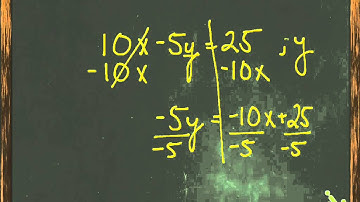 10x-5y=25 ;y
-10x -10x
-5y=-10x+25
-5 -5 -5